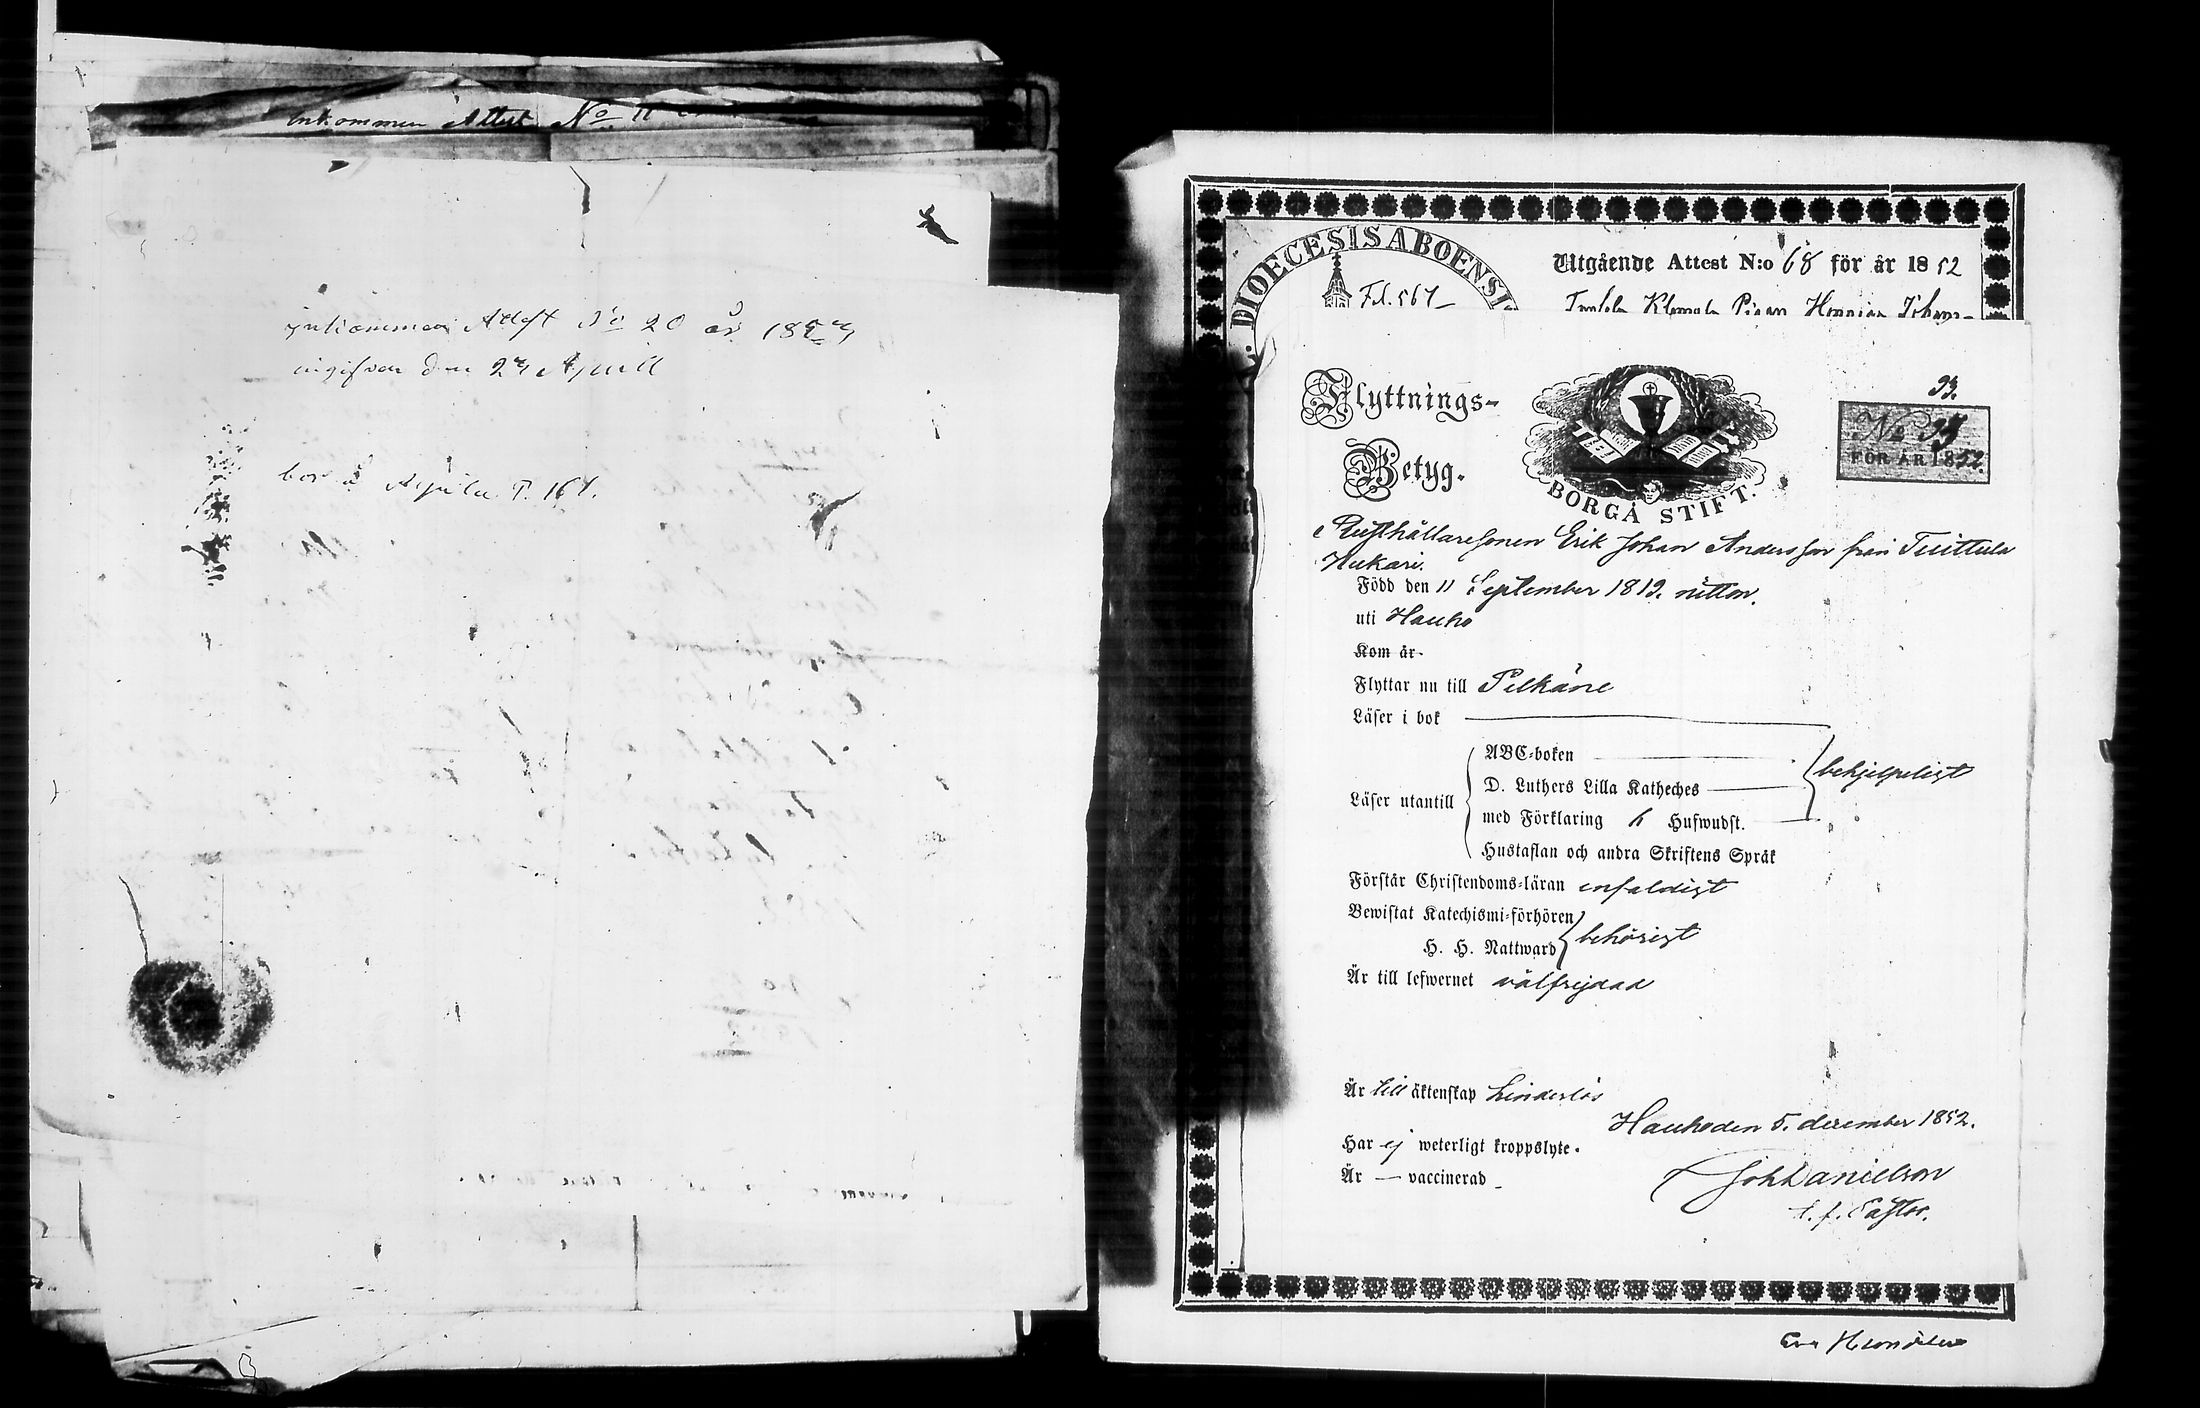 Inkommen Attest No 11
Inkommen Attest No 20 år 1853
ingifven den 24 Aprill
bor å Äijälä P. 164.
DIOECESIS ABOENSI
Fol. 567
Utgående Attest N:o 68 för år 1852
Pigan
Flyttnings-
Betyg.
BORGÅ STIFT.
93.
No 93
FÖR ÅR 1852
Rusthållaresonen Erik Johan Andersson från Tuittula
Hukari.
Född den 11 September 1819. nitton.
uti Hauho
Kom år
Flyttar nu till Pelkäne
Läser i bok
Läser utantill
ABC-boken
D. Luthers Lilla Katheches
behjelpeligt
med Förklaring 6 Hufwudst.
Hustaflan och andra Skriftens Språk
Förstår Christendoms-läran enfaldigt
Bewistat Katechismi-förhören
H. H. Nattward
behörigt
Är till lefwernet välfrejdad
Är till äktenskap hinderlös
Hauho den 5. december 1852.
Har ej weterligt kroppslyte.
Är — vaccinerad
Joh Danielson
t. f. Pastor.